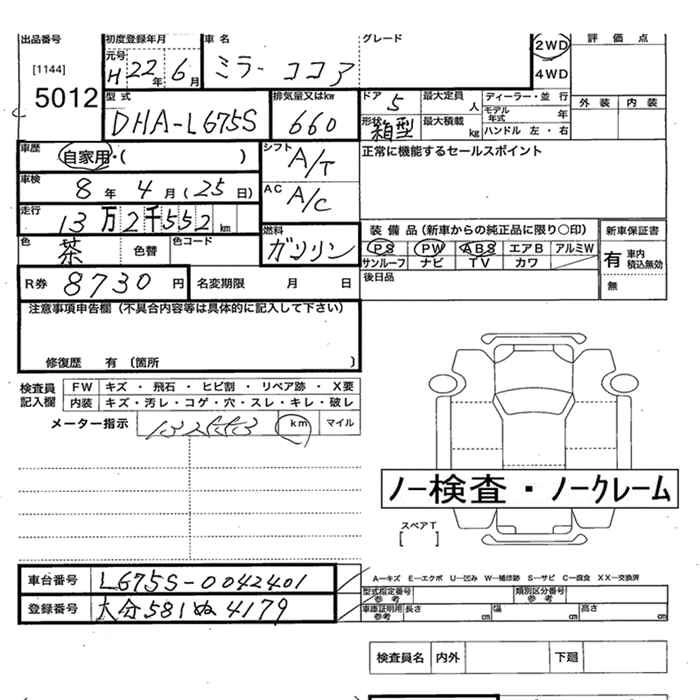 出品番号 初度登録年月 車名 グレード 2WD 評価点
[1144] 元号 H 22年 6月 ミラー ココア 4WD
5012 型式 排気量又はkw ドア 5 最大定員 人 ディーラー・並行 外装 内装
DHA-L675S 660 形状 箱型 最大積載 kg モデル年式 年
ハンドル 左・右
車歴 自家用・( ) シフト A/T 正常に機能するセールスポイント
車検 8年 4月 (25日) AC A/C
走行 13万2千552km 燃料 ガソリン 装備品(新車からの純正品に限り○印) 新車保証書
色 茶 色替 色コード PS PW ABS エアB アルミW 有 車内積込無効
サンルーフ ナビ TV カワ
R券 8730円 名変期限 月 日 後日品 無
注意事項申告欄(不具合内容等は具体的に記入して下さい)
修復歴 有 (箇所 )
検査員記入欄 FW キズ・飛石・ヒビ割・リペア跡・X要
内装 キズ・汚レ・コゲ・穴・スレ・キレ・破レ
メーター指示 km マイル
ノー検査・ノークレーム
スペアT
[ ]
車台番号 L675S-0042401 A－キズ E－エクボ U－凹み W－補修跡 S－サビ C－腐食 XX－交換済
登録番号 大分581ぬ4179 型式指定番号 参考 類別区分番号 参考
車庫証明用 参考 長さ cm 幅 cm 高さ cm
検査員名 内外 下廻